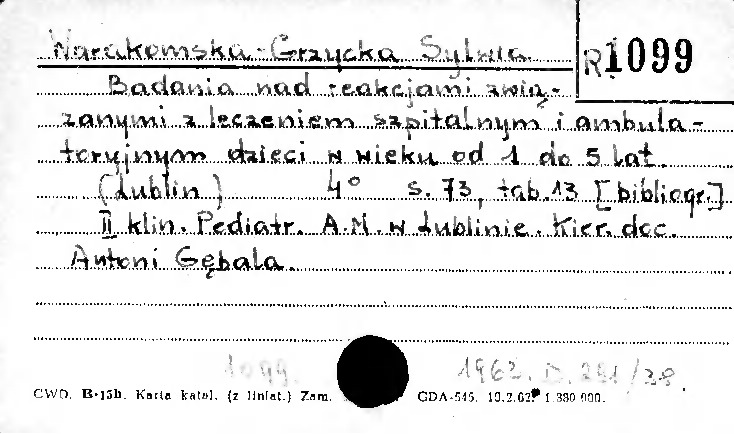 Warakomska-Grzycka Sylwia
R 1099
Badania nad reakcjami zwią-
zanymi z leczeniem szpitalnym i ambula-
toryjnym dzieci w wieku od 1 do 5 lat.
(Lublin) 4° s. 73, tab. 13 [bibliogr.]
II klin. Pediatr. A.M. w Lublinie. Kier. doc.
Antoni Gębala.
1099. 1962. D. 291/38.
CWD. B-15b. Karta katal. (z liniat.) Zam. GDA-545. 19.2.62. 1.880.000.